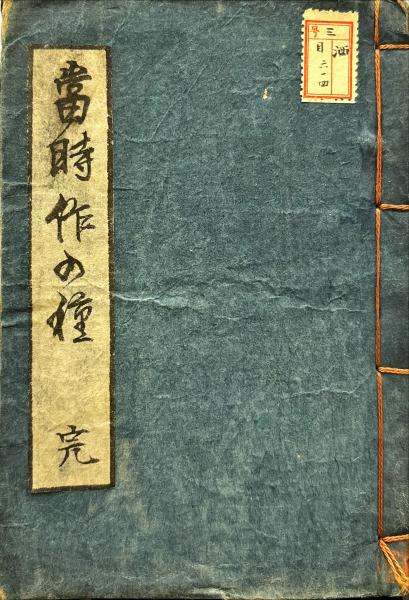 當時作の種 完
三号
酒
目六一四